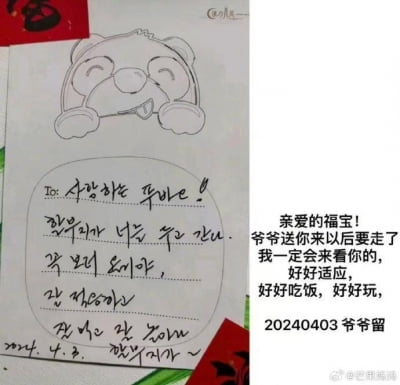 To: 사랑하는 푸바오!!
할부지가 너를 두고 간다.
꼭 보러 올께야,
잘 적응하고
잘 먹고 잘 놀아라
2024. 4. 3. 할부지가~
亲爱的福宝！
爷爷送你来以后要走了
我一定会来看你的，
好好适应，
好好吃饭，好好玩，
20240403 爷爷留